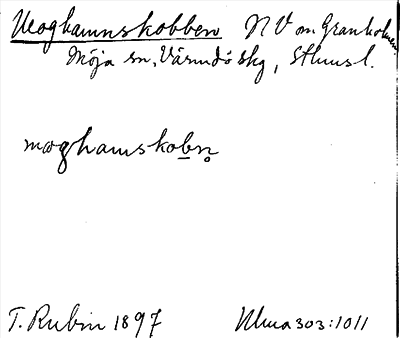 Moghamnskobben NV om Granholmen
Möja sn, Värmdö skg, Sthms l.
mωghamskobn̥
T. Rubin 1897 Ulma 303:1011